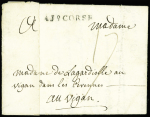 63 CORPS
A Madame
madame de Lagardiolle au
vigan dans les Cevennes
au vigan.